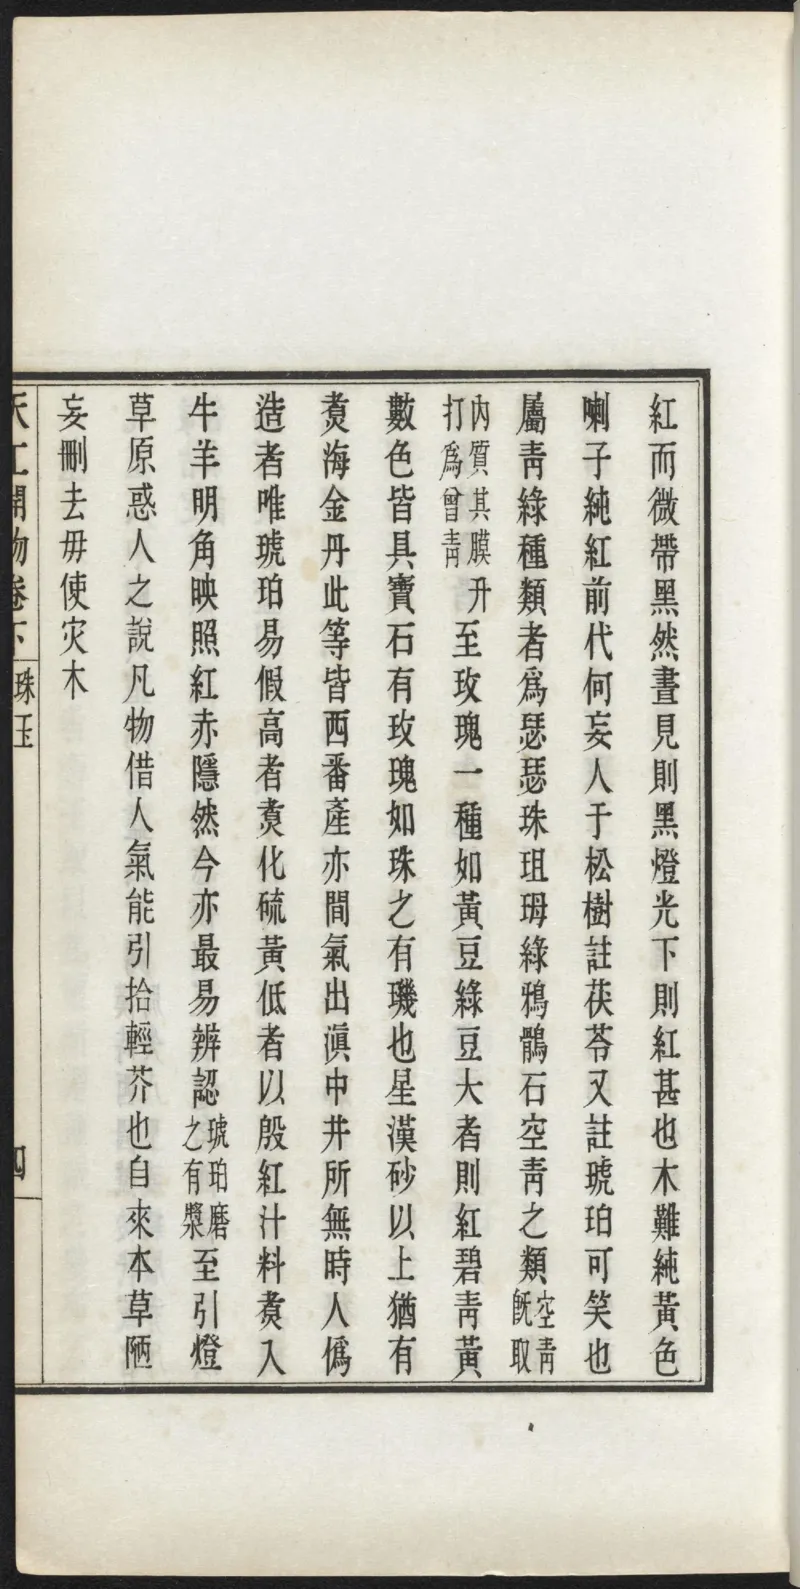 紅而微帶黑然晝見則黑燈光下則紅甚也木難純黃色
喇子純紅前代何妄人于松樹註茯苓又註琥珀可笑也
屬靑綠種類者爲瑟瑟珠珇㻅綠鴉鶻石空靑之類空靑旣取
內質其膜升打爲曾靑至玫瑰一種如黃豆綠豆大者則紅碧靑黃
數色皆具寶石有玫瑰如珠之有璣也星漢砂以上猶有
煑海金丹此等皆西番產亦間氣出滇中井所無時人僞
造者唯琥珀易假高者煑化硫黃低者以殷紅汁料煑入
牛羊明角映照紅赤隱然今亦最易辨認琥珀磨之有漿至引燈
草原惑人之說凡物借人氣能引拾輕芥也自來本草陋
妄刪去毋使灾木
天工開物卷下 珠玉 四